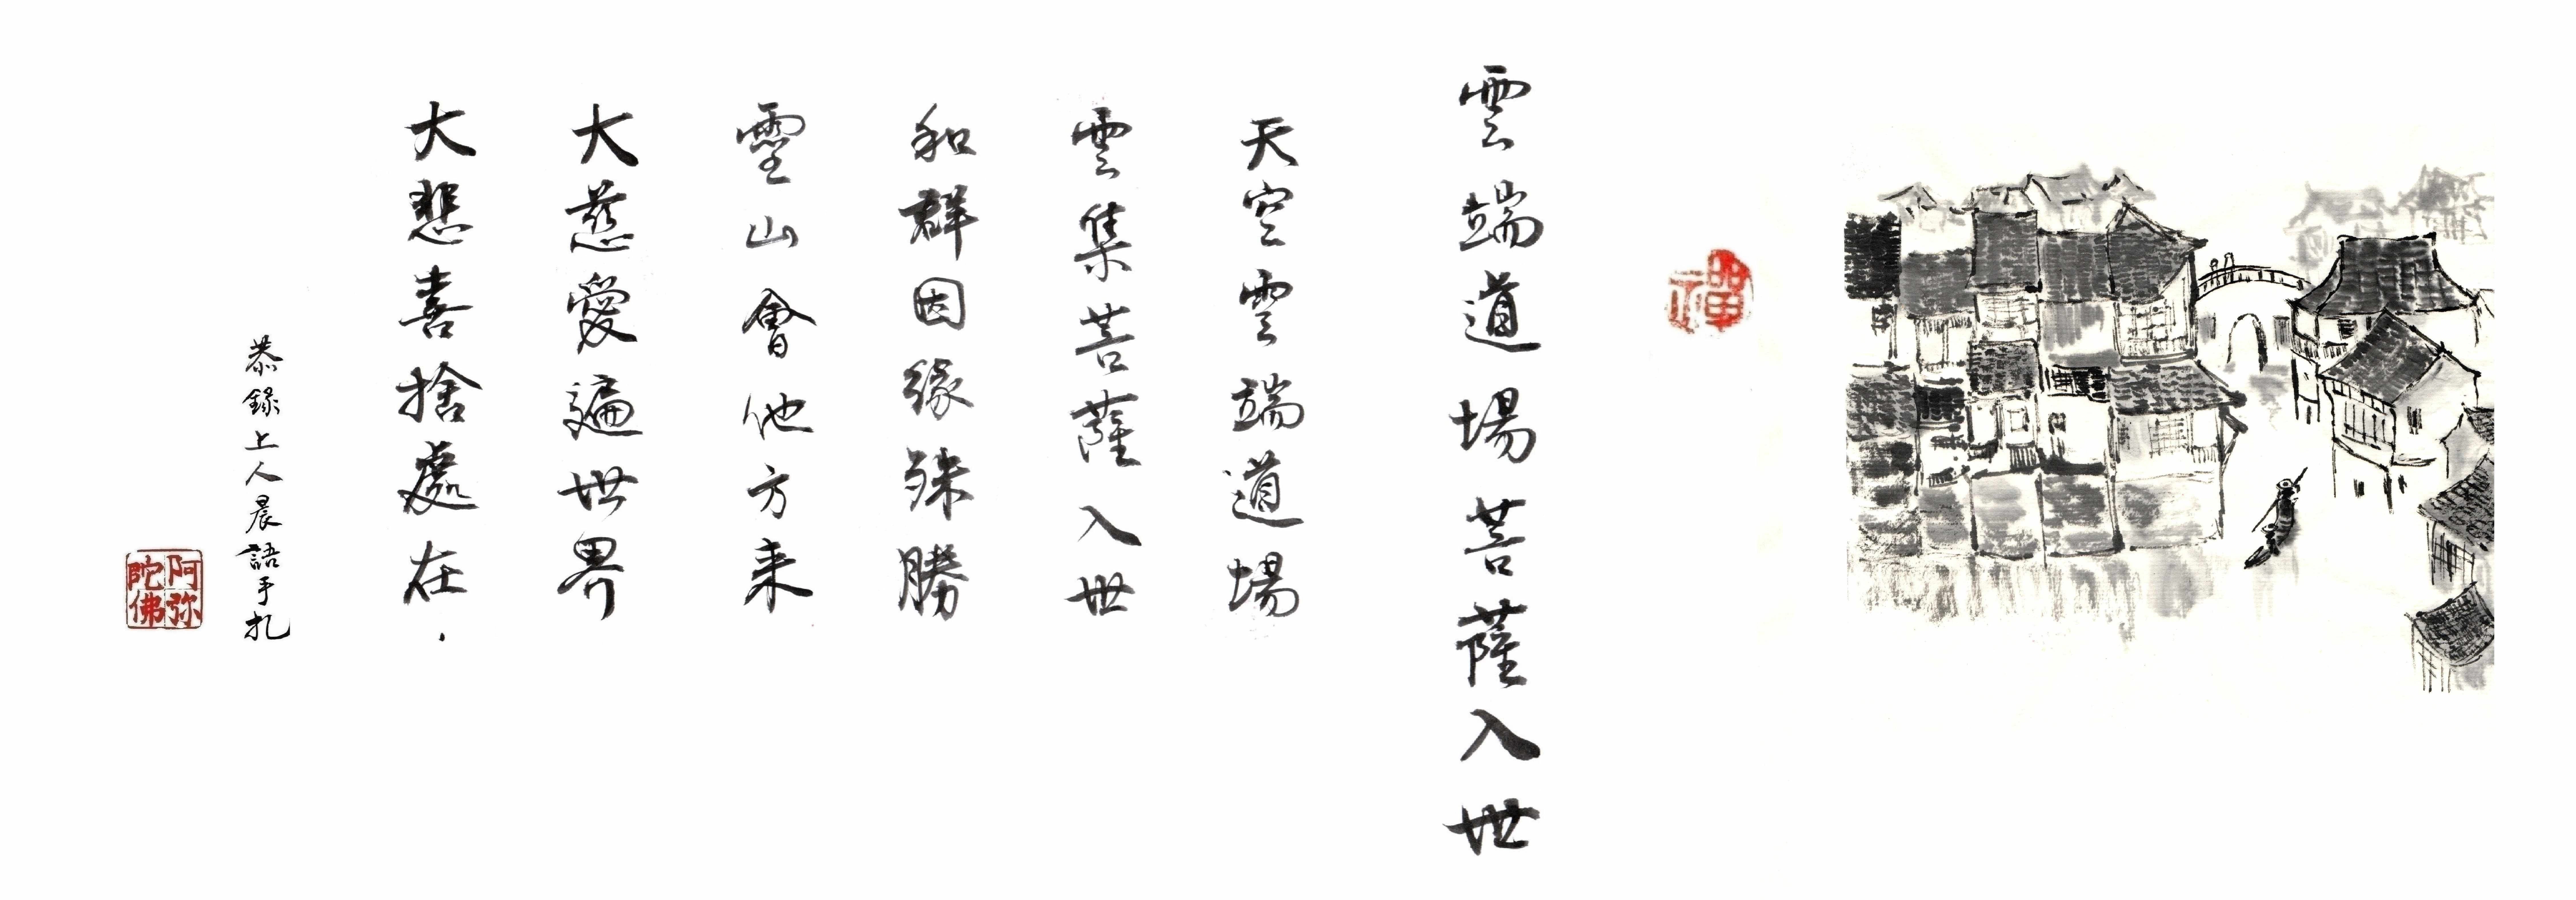 禪
雲端道場菩薩入世
天空雲端道場
雲集菩薩入世
和群因緣殊勝
靈山會他方来
大慈愛遍世界
大悲喜捨處在
恭錄上人晨語手札
阿弥陀佛